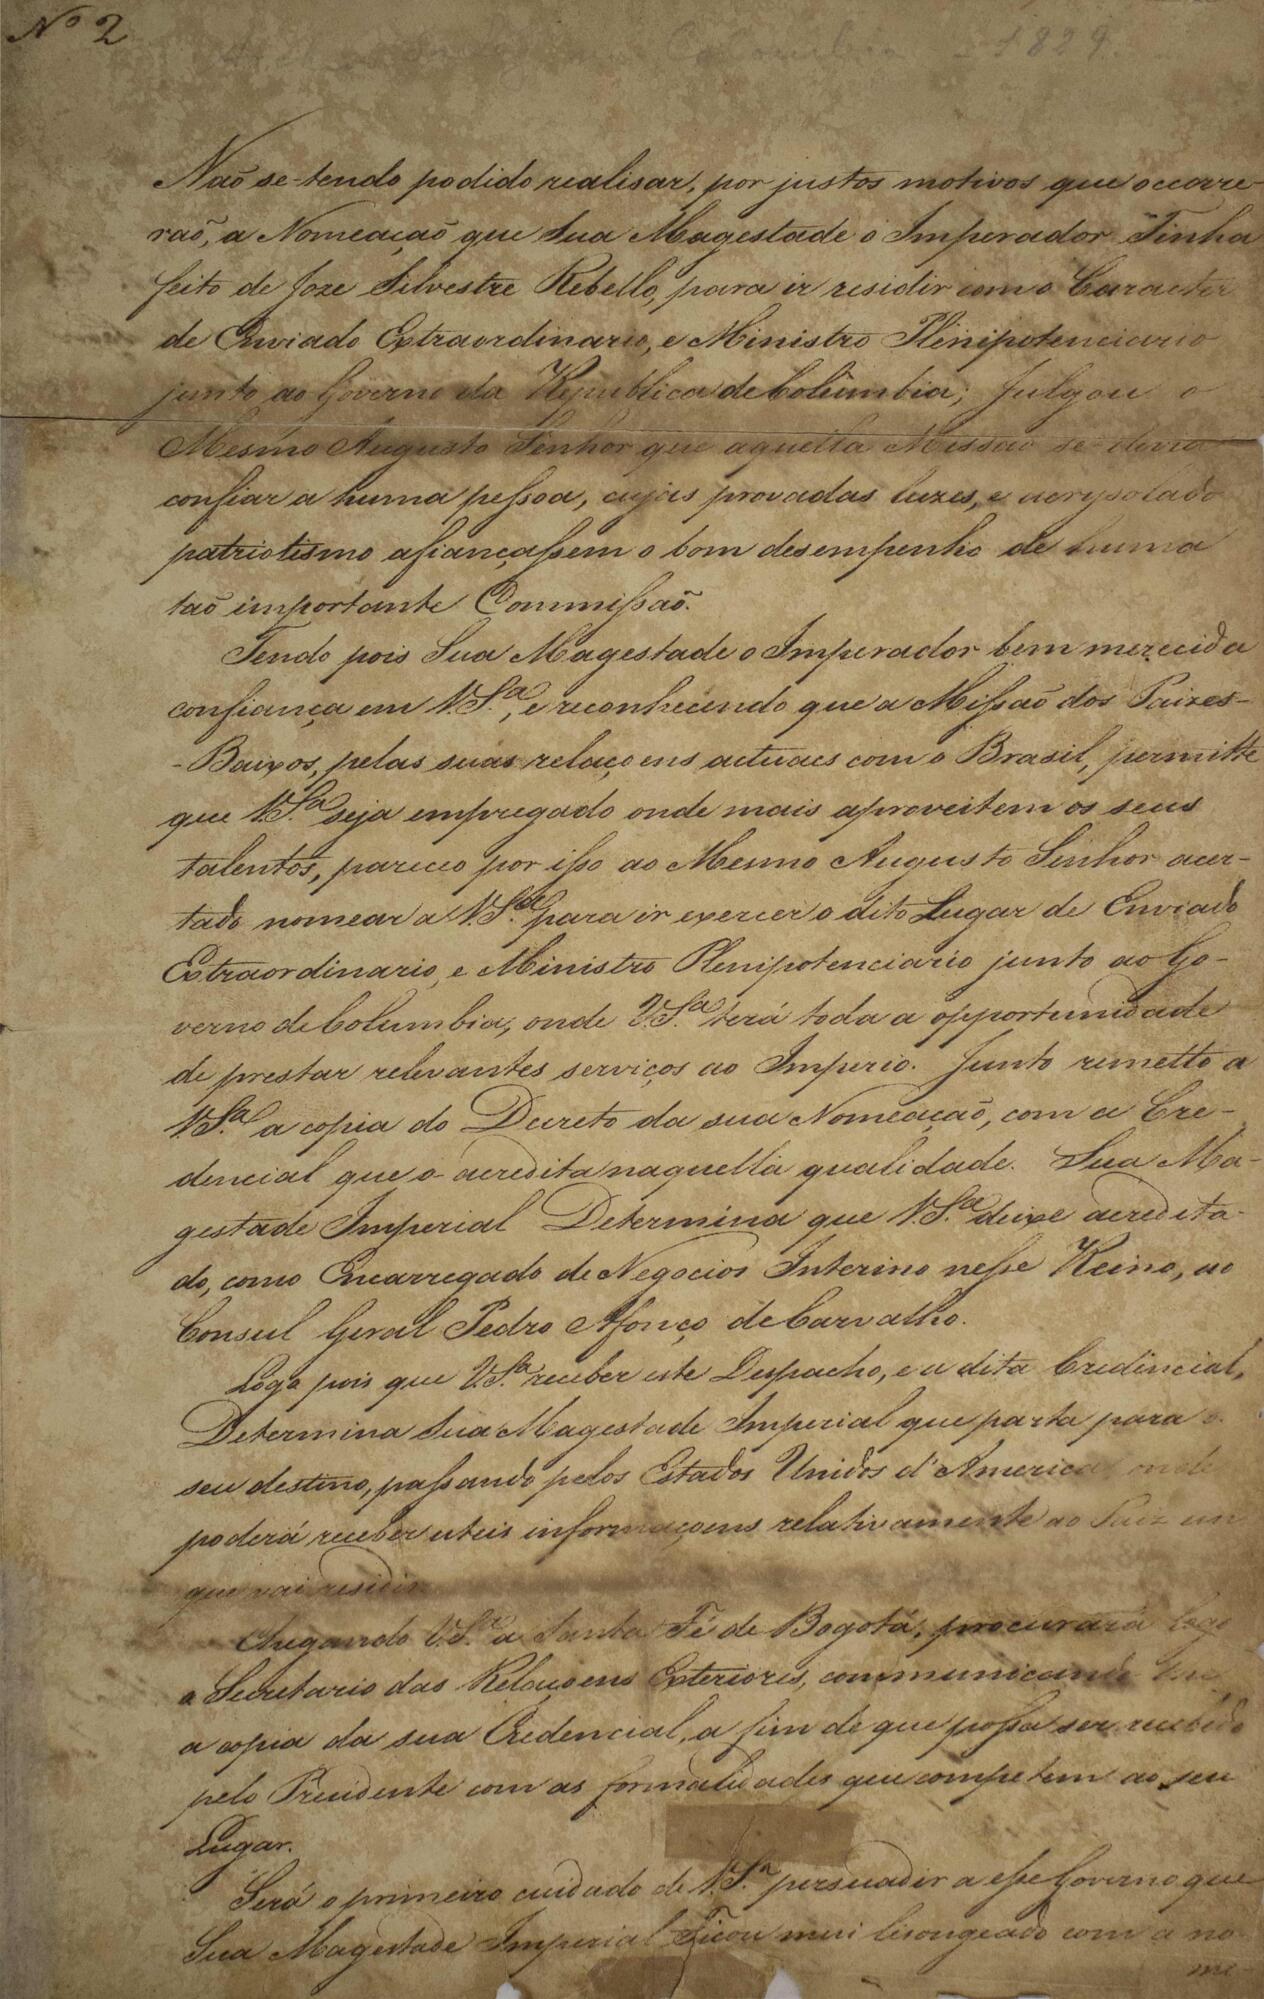 Nº 2
Columbia - 1829.
Naõ se-tendo podido realisar, por justos motivos que occorre-
raõ, a Nomeaçaõ que Sua Magestade o Imperador Tinha
feito de Joze Silvestre Rebello, para ir residir com o Caracter
de Enviado Extraordinario, e Ministro Plenipotenciario
junto ao Governo da Republica de Colûmbia; Julgou o
Mesmo Augusto Senhor que aquella Missaõ se devia
confiar a huma pessoa, cujas provadas luzes, e acrysolado
patriotismo afiançassem o bom desempenho de huma
taõ importante Commissaõ.
Tendo pois Sua Magestade o Imperador bem merecida
confiança em V.S.ª, e reconhecendo que a Missaõ dos Paizes-
-Baixos, pelas suas relaçoens actuaes com o Brasil, permitte
que V.S.ª seja empregado onde mais aproveitem os seus
talentos, pareceo por isso ao Mesmo Augusto Senhor acer-
tado nomear a V.S.ª para ir exercer o dito Lugar de Enviado
Extraordinario, e Ministro Plenipotenciario junto ao Go-
verno de Columbia, onde V.S.ª terá toda a opportunidade
de prestar relevantes serviços ao Imperio. Junto remetto a
V.S.ª a copia do Decreto da sua Nomeaçaõ, com a Cre-
dencial que o acredita naquella qualidade. Sua Ma-
gestade Imperial Determina que V.S.ª deixe acredita-
do, como Encarregado de Negocios Interino nesse Reino, ao
Consul Geral Pedro Afonço de Carvalho.
Logo pois que V.S.ª receber este Despacho, e a dita Credencial,
Determina Sua Magestade Imperial que parta para o
seu destino, passando pelos Estados Unidos d'America, onde
poderá receber uteis informaçoens relativamente ao Paiz em
que vai residir.
Chegando V.S.ª a Santa Fé de Bogotá, procurará logo
o Secretario das Relaçoens Exteriores, communicando
a copia da sua Credencial, a fim de que possa ser recebido
pelo Prezidente com as formalidades que competem ao seu
Lugar.
Será o primeiro cuidado de V.S.ª persuadir a esse Governo que
Sua Magestade Imperial Ficou mui lisongeado com a no-
me-